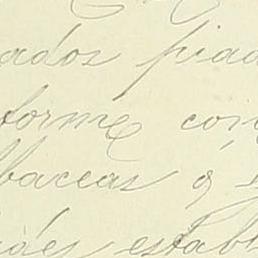 ados piado
forme con
baceas y
dades estab